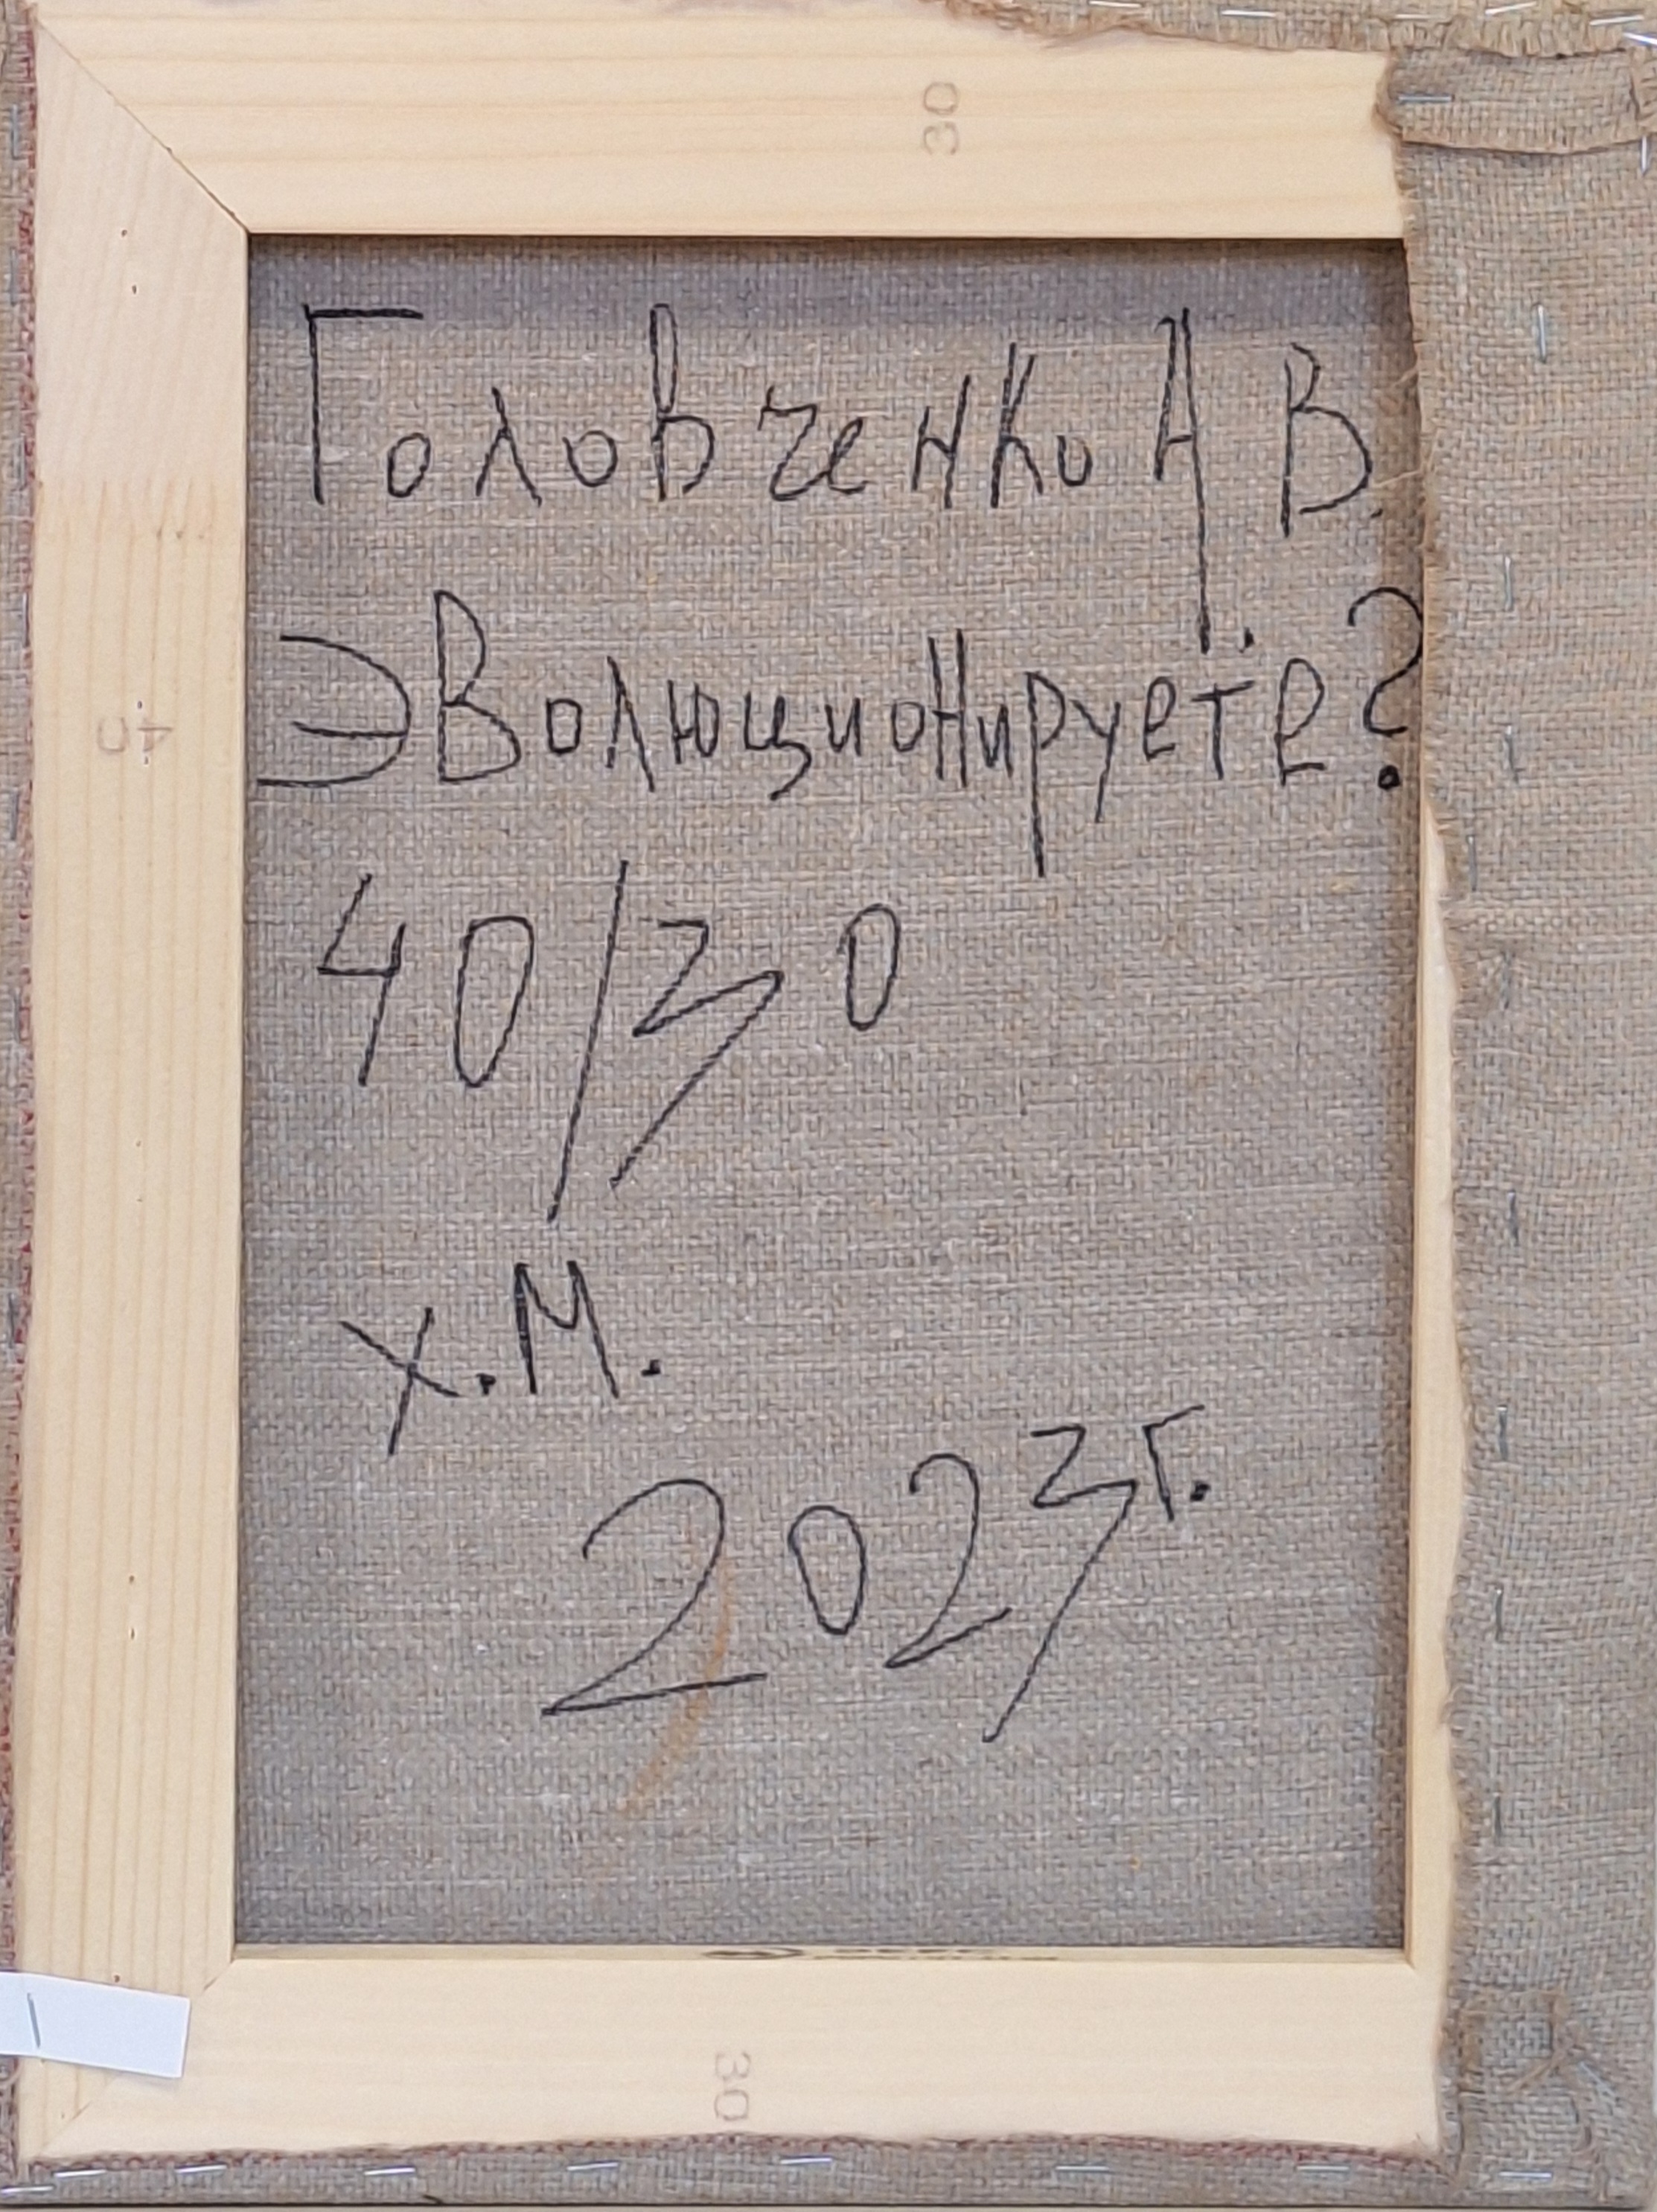 30
Головченко А. В.
Эволюционируете?
40
40/30
х.м.
2023г.
30